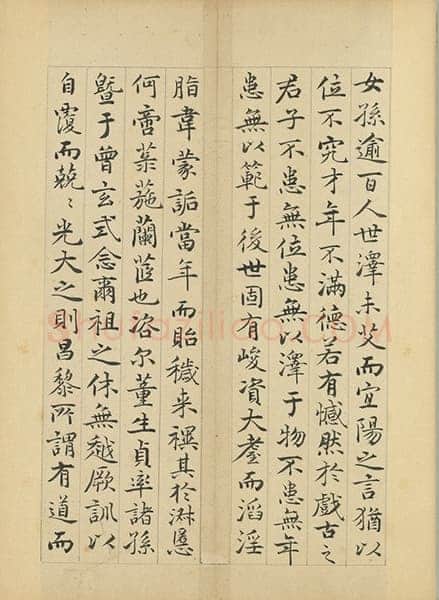 女孫逾百人世澤未艾而宜陽之言猶以
位不究才年不滿德若有憾然於戲古之
君子不患無位患無以澤于物不患無年
患無以範于後世固有峻資大耋而滔淫
脂韋蒙詬當年而貽穢来禩其於淑慝
何啻菉葹蘭茝也咨尔董生貞率諸孫
暨于曾玄式念爾祖之休無越厥訓以
自覆而兢〻光大之則昌黎所謂有道而